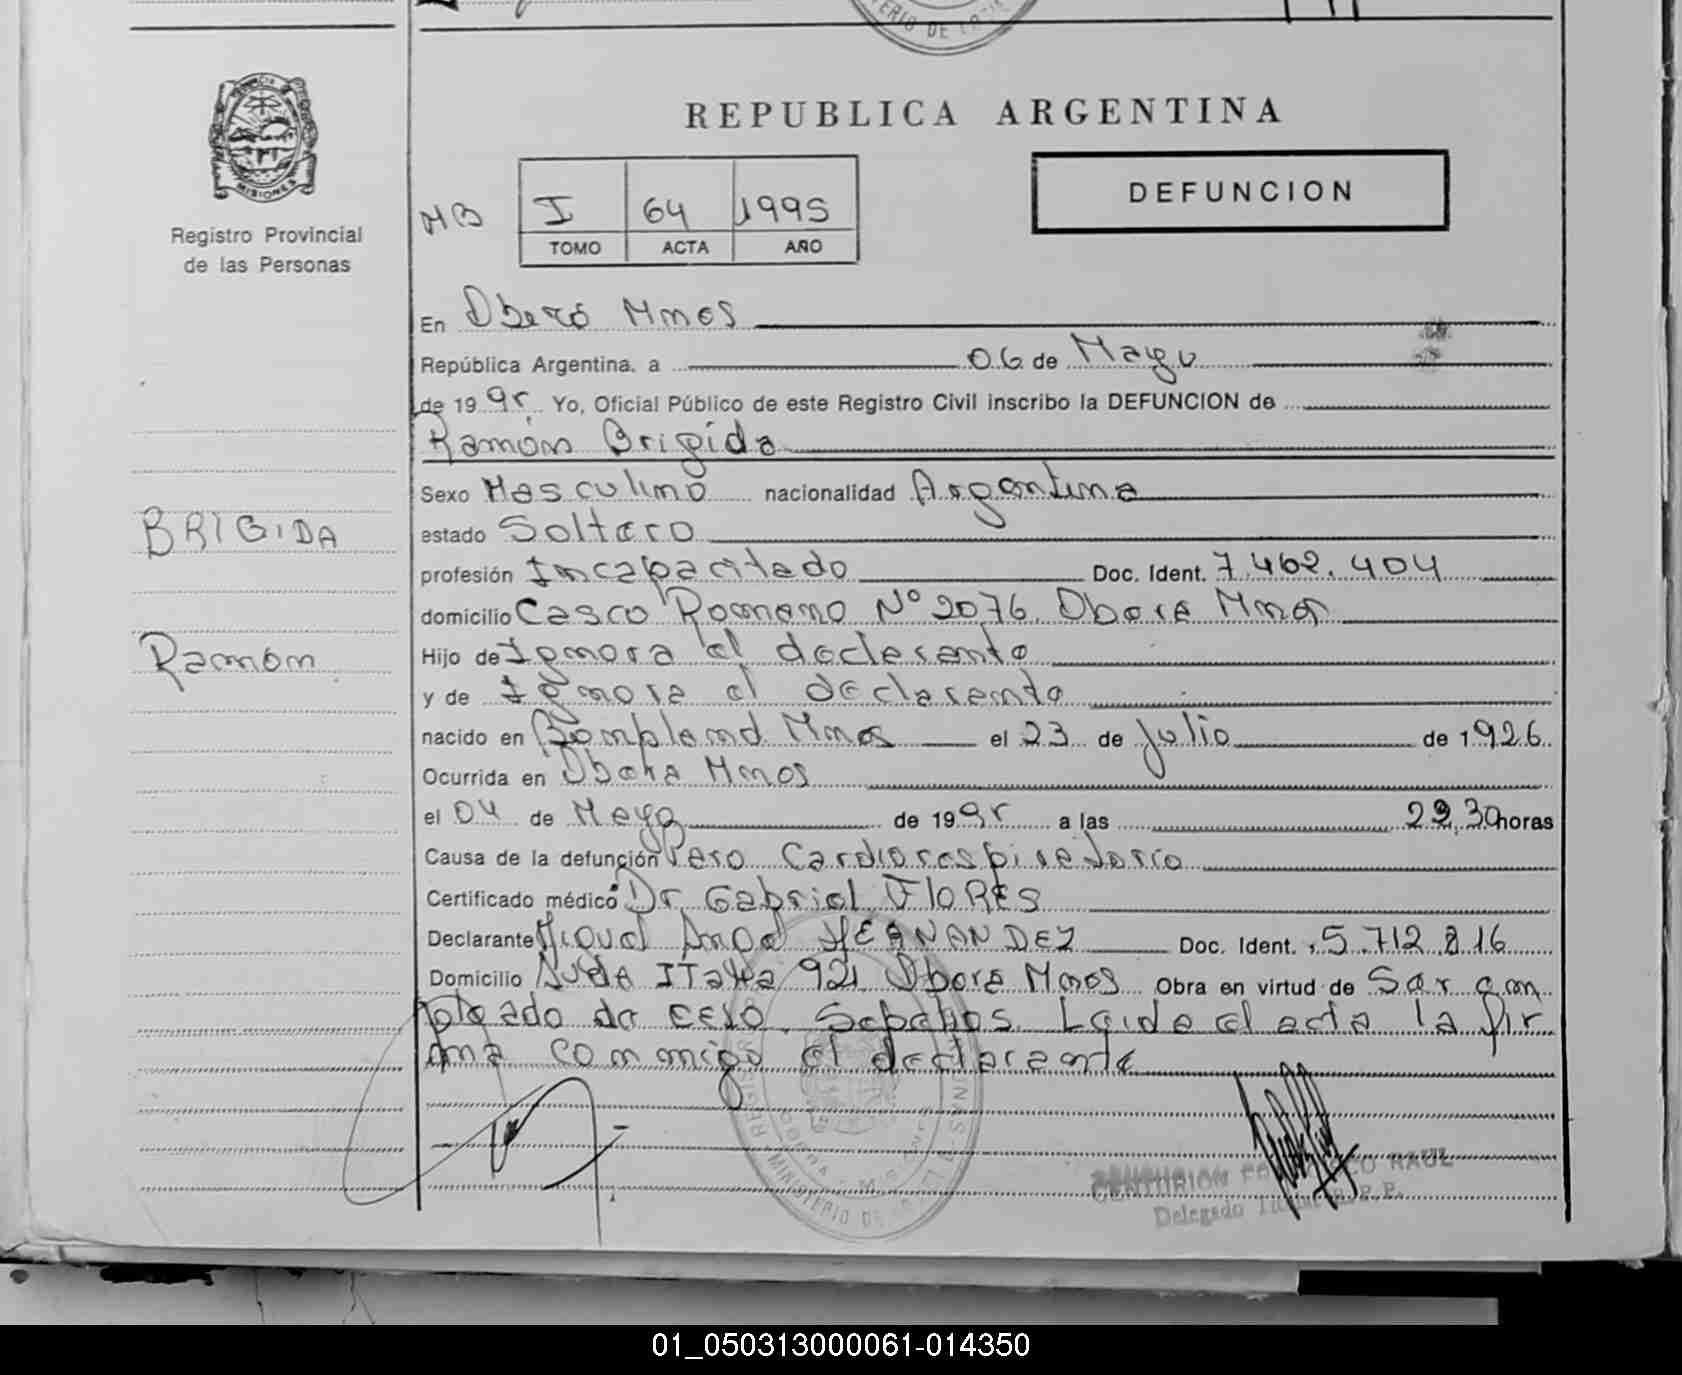 REPUBLICA ARGENTINA
DEFUNCION
MISIONES
Registro Provincial
de las Personas
MB I 64 1995
TOMO ACTA AÑO
En Oberá Mnes
República Argentina, a 06 de Mayo
de 1995 Yo, Oficial Público de este Registro Civil inscribo la DEFUNCION de
Ramón Brigida
Sexo Masculino nacionalidad Argentina
BRIGIDA
estado Soltero
profesión Incapacitado Doc. Ident. 7.462.404
domicilio Casco Romano Nº 2076 Obera Mnes
Ramón
Hijo de Ignora el declarante
y de Ignora el declarante
nacido en Bompland Mnes el 23 de Julio de 1926
Ocurrida en Obera Mnes
el 04 de Mayo de 1995 a las 22,30 horas
Causa de la defunción Paro Cardiorespiratorio
Certificado médico Dr Gabriel FlORES
Declarante Miguel Angel HERNANDEZ Doc. Ident. 5.712.816
Domicilio Avda ITalia 921 Obera Mnes Obra en virtud de Ser em
pleado de casa Sepelios. Leida el acta la fir
ma conmigo el declarante
MINISTERIO DE
CENTURION RAUL
Delegado R.P.P.
01_050313000061-014350